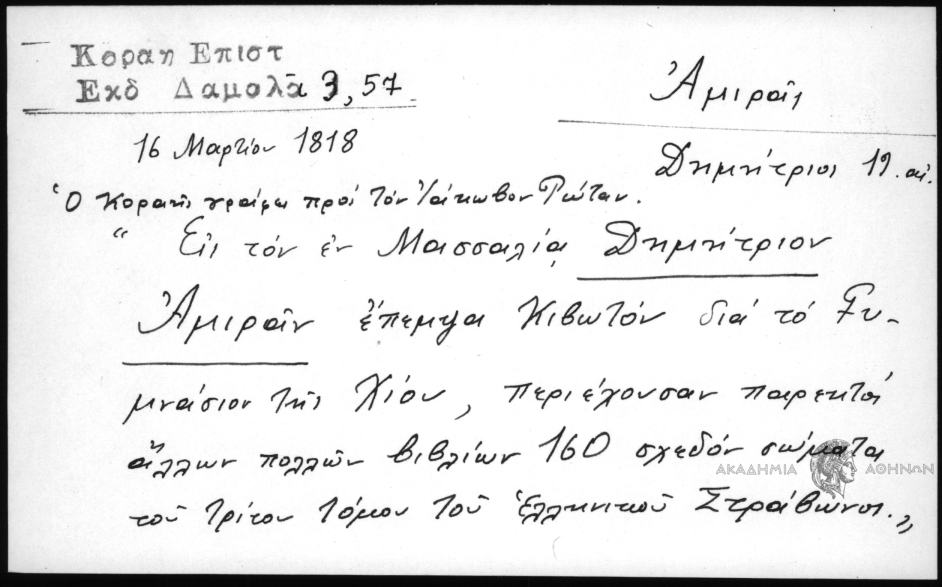 Κοραη Επιστ
Εκδ Δαμαλᾶ 3, 57
Ἀμιρᾶς
16 Μαρτίου 1818
Δημήτριος 19. αἰ.
Ὁ Κοραῆς γράφει πρός τόν Ἰάκωβον Ρώταν.
“ Εἰς τόν ἐν Μασσαλίᾳ Δημήτριον
Ἀμιρᾶν ἔπεμψα Κιβωτόν διά τό Γυ-
μνάσιον τῆς Χίου, περιέχουσαν παρεκτός
ἄλλων πολλῶν βιβλίων 160 σχεδόν σώματα
τοῦ τρίτου τόμου τοῦ Ἑλληνικοῦ Στράβωνος.„
ΑΚΑΔΗΜΙΑ ΑΘΗΝΩΝ